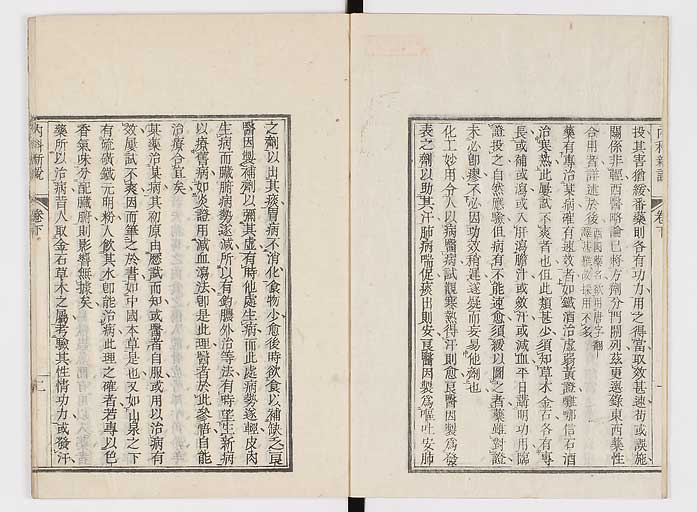 投其害猶緩番藥則各有功力用之得當取效甚速苟或誤施
關係非輕西醫略論已將方劑分門臚列茲更選錄東西藥性
合用者詳述於後
藥有專治某病確有速效者如鐵酒治虛弱黃證嘰哪信石酒
治寒熱此屢試不爽者也但此類甚少須知草木金石各有專
長或補或瀉或入肝瀉膽汁或斂汗或減血平日講明功用臨
證投之自然應驗但病有不能速愈須緩以圖之者藥雖對證
未必卽瘳不必因功效稍遲遂疑而妄易他劑也
化工妙用令人以病醫病試觀寒熱得汗則愈良醫因製為發
表之劑以助其汗肺病喘促痰出則安良醫因製為嘔吐安肺
內科新說
卷下
一
之劑以出其痰胃病不消化食物少愈後時欲食以補缺乏良
醫因製補劑以彌其虛有時他處生病而此處病勢遂輕皮肉
生病而臟腑病勢遂減所以有釣膿外治等法有時望生新病
以療舊病如炎證用減血瀉法卽是此理醫者於此參悟自能
治療合宜矣
某藥治某病其初原由應試而知或醫者自服或用以治病有
效屢試不爽因而筆之於書如中國本草是也又如山泉之下
有硫磺鐵元明粉人飲其水卽能治病此理之確者若專以色
香氣味分配臟腑則影響無據矣
藥所以治病昔人取金石草木之屬考驗其性情功力或發汗
內科新說
卷下
二